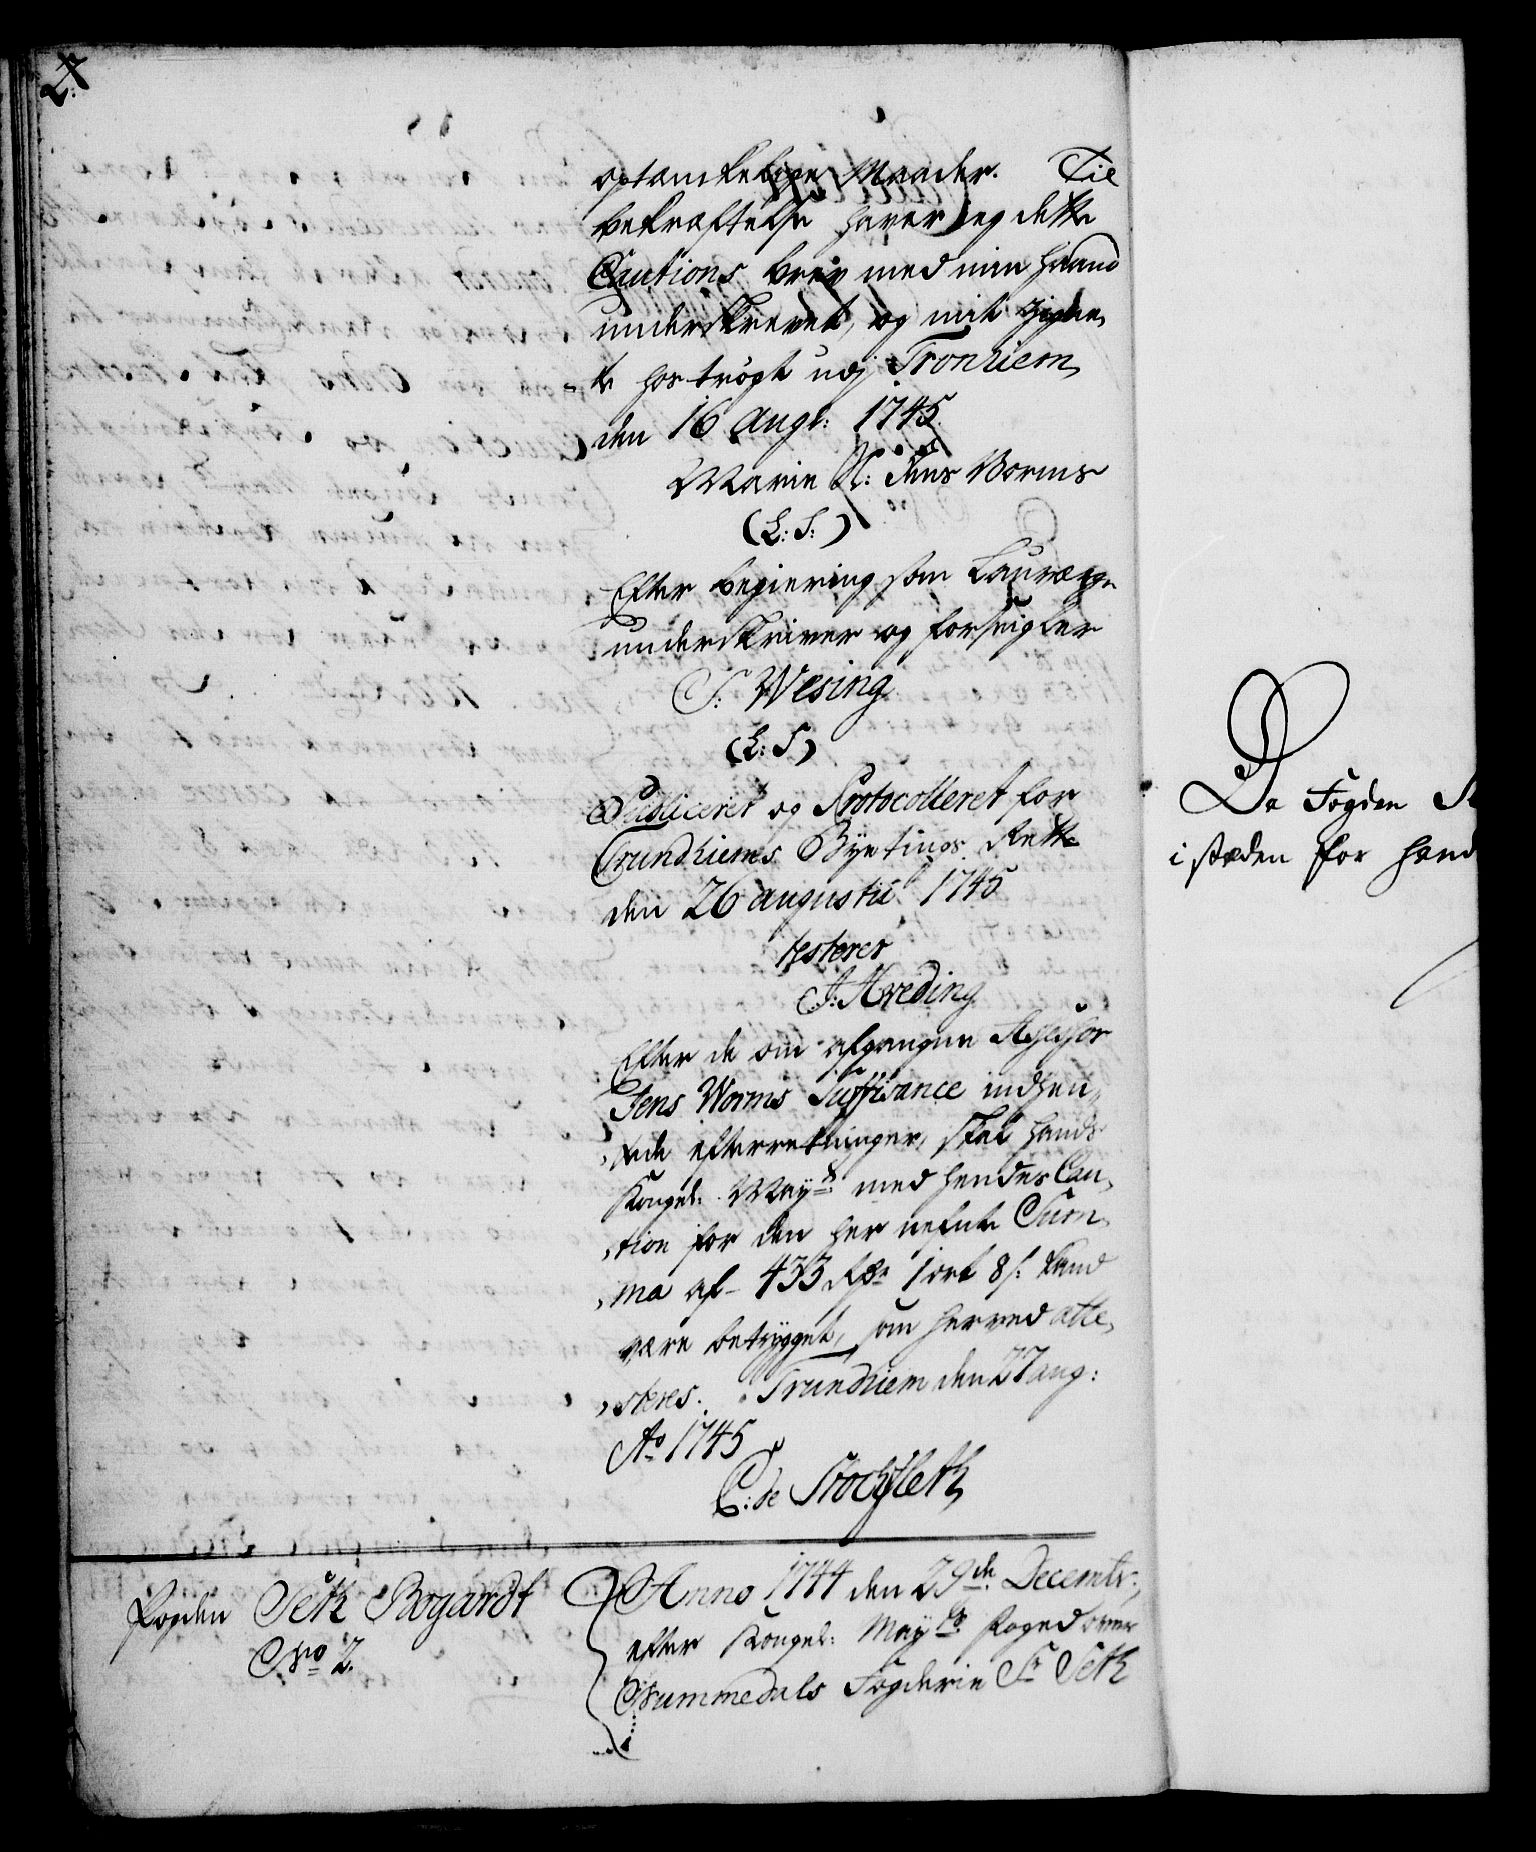 optænckelige Maader. Til
bekræftelse haver jeg dette
Cautions brev med min haand
underskrevet, og mit Zigne,
te hostrÿgt udj Tronhiem,
den 16 Augl: 1745.
Marie S: Jens Worms
(L: S:)
Efter begiering som Laurværge
underskriver og forseigler
S: Wesing
(L: S)
Publiceret og Protocolleret for
Trundhiems Bÿetings Rett
den 26 augustii 1745
testerer
J: Hveding
Efter de om afgangne Assessor
Jens Worms Suffisance indhen,
,tede efterretninger, skal hands
Kongel: Maÿts med hendes Cau,
,tion for den her nefnte Sum,
,ma af 433 Rdr 1 ort 8 s. kand
være betrÿgget, som herved atte,
,steres. Trundhiem den 27 aug:
Ao 1745
C: de Stockfleth
Fogden Seth Bogardt
No 2.
Anno 1744 den 29de Decembr:,
efter Kongel: Maÿts Foged over
Nummedals Fogderie Sr Seth
Da Fogden
i stæden for hand